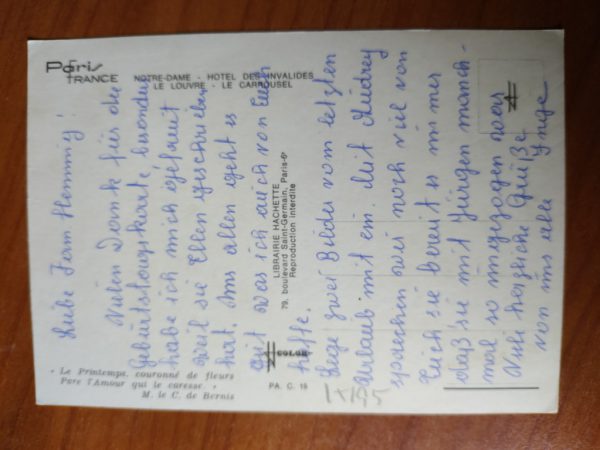 Paris
FRANCE
NOTRE-DAME - HOTEL DES INVALIDES
LE LOUVRE - LE CARROUSEL
Liebe Fam Flemming!
Vielen Dank für die
Geburtstagskarte besonders
habe ich mich gefreut
weil sie Ellen geschrieben
hat. Uns allen geht es
gut was ich auch von Euch
hoffe.
Lege zwei Bilder vom letzten
Urlaub mit ein. Mit Audrey
sprechen wir noch viel von
Euch sie bereut es immer
daß sie mit Jürgen manch-
mal so ungezogen war
Viele herzliche Grüße
von uns alle
Inge
LIBRAIRIE HACHETTE
79, boulevard Saint-Germain, Paris-6e
Reproduction interdite
COLOR
« Le Printemps, couronné de fleurs
Pare l'Amour qui le caresse. »
M. le C. de Bernis
PA. C. 18